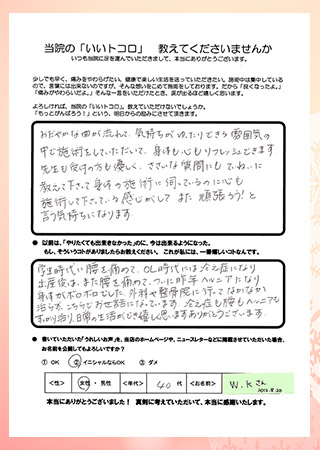 当院の「いいトコロ」 教えてくださいませんか
いつも当院に足を運んでいただきまして、本当にありがとうございます。
少しでも早く、痛みをやわらげたい、健康で楽しい生活を送っていただきたい。施術中は集中しているので、言葉には出来ないのですが、そんな想いをこめて施術をしております。だから「良くなったよ。」「痛みがやわらいだよ。」そんな一言をいただけたとき、涙が出るほど嬉しく思います。
よろしければ、当院の「いいトコロ」、教えていただけないでしょうか。
「もっとがんばろう!」という、明日からの励みにさせて頂きます。
おだやかな曲が流れて、気持ちがゆったりできる雰囲気の
中で施術をしていただいて、身体も心もリフレッシュできます
先生も受付の方も優しく、ささいな質問にもていねいに
教えて下さって身体の施術に伺っているのに心も
施術して下さっている感じがして また 頑張ろう!と
言う気持ちになります
● 以前は、「やりたくても出来きなかった」のに、今は出来るようになった。
もし、そういうコトがありましたらお教えください。 これが私には、一番嬉しいコトなんです。
学生時代に腰を痛めて、OL時代には冷え症になり
出産後は、また腰を痛めて、ついに昨年ヘルニアになり
身体がボロボロでした。外科や整骨院に行ってもなかなか
治らず、こちらにお世話になっています 冷え症も腰もヘルニアも
すっかり治り、日常の生活ができ嬉しく思います ありがとうございます。
● 書いていただいた「うれしいお声」を、当店のホームページや、ニュースレターなどに掲載させていただいた場合、お名前を公開してもよろしいですか?
① OK ② イニシャルならOK ③ ダメ
<性> 女性 ・ 男性 <年代> 40 代 <お名前> W.K さん
2012.8.20
本当にありがとうございました! 真剣に考えていただいて、本当に感謝いたします。